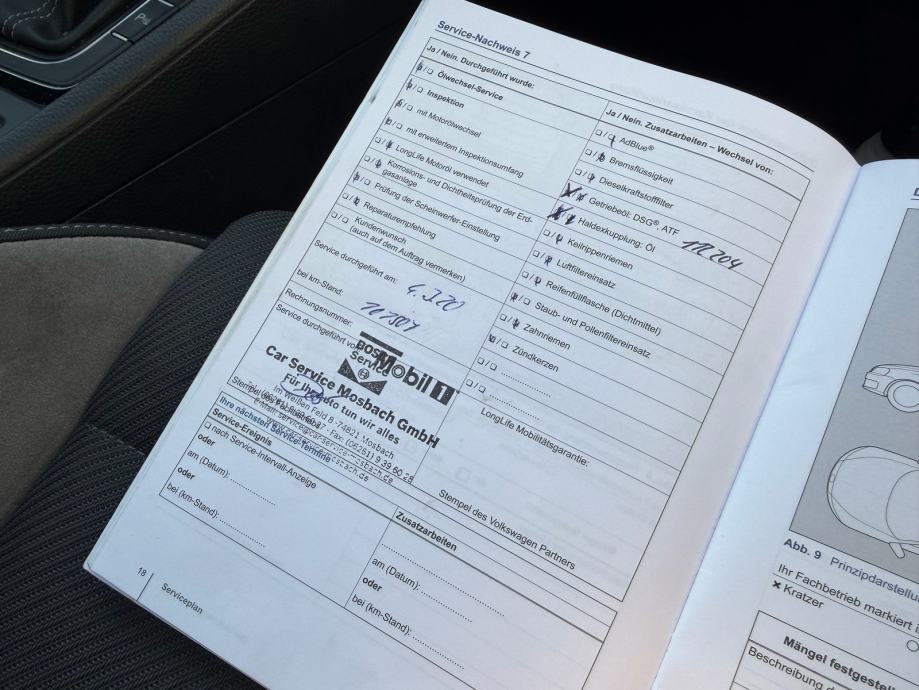 Service-Nachweis 7
Ja / Nein. Durchgeführt wurde:
Ölwechsel-Service
Inspektion
mit Motorölwechsel
mit erweitertem Inspektionsumfang
LongLife Motoröl verwendet
Korrosions- und Dichtheitsprüfung der Erd-
gasanlage
Prüfung der Scheinwerfer-Einstellung
Reparaturempfehlung
Kundenwunsch
(auch auf dem Auftrag vermerken)
Service durchgeführt am:
bei km-Stand:
Rechnungsnummer:
Service durchgeführt von
Service
Mobil 1
Car Service Mosbach GmbH
Für Ihr Auto tun wir alles
Im Weißen Feld 8 · 74821 Mosbach
Ihre nächsten Service-Termine
Service-Ereignis
nach Service-Intervall-Anzeige
oder
am (Datum):
oder
bei (km-Stand):
Ja / Nein. Zusatzarbeiten – Wechsel von:
AdBlue®
Bremsflüssigkeit
Dieselkraftstofffilter
Getriebeöl: DSG® ATF
Haldexkupplung: Öl
Keilrippenriemen
Luftfiltereinsatz
Reifenfüllflasche (Dichtmittel)
Staub- und Pollenfiltereinsatz
Zahnriemen
Zündkerzen
LongLife Mobilitätsgarantie:
Stempel des Volkswagen Partners
Zusatzarbeiten
am (Datum):
oder
bei (km-Stand):
18
Serviceplan
P
Abb. 9 Prinzipdarstellu
Ihr Fachbetrieb markiert i
× Kratzer
Mängel festgestell
Beschreibung d